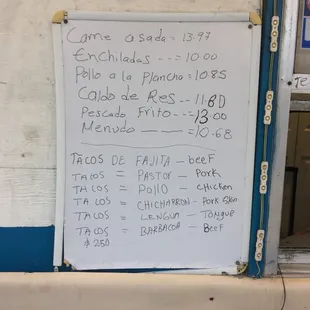 Carne asada = 13.97
Enchiladas --- = 10.00
Pollo a la Plancha = 10.85
Caldo de Res -- 11.80
Pescado Frito --- = 13.00
Menudo ——— = 10.68
TACOS DE FAJITA – beef
TACOS = PASTOR – Pork
TACOS = Pollo – Chicken
TACOS = CHICHARRON – Pork Skin
TACOS = LENGUA – TONGUE
TACOS = BARBACOA – Beef
$ 2.50